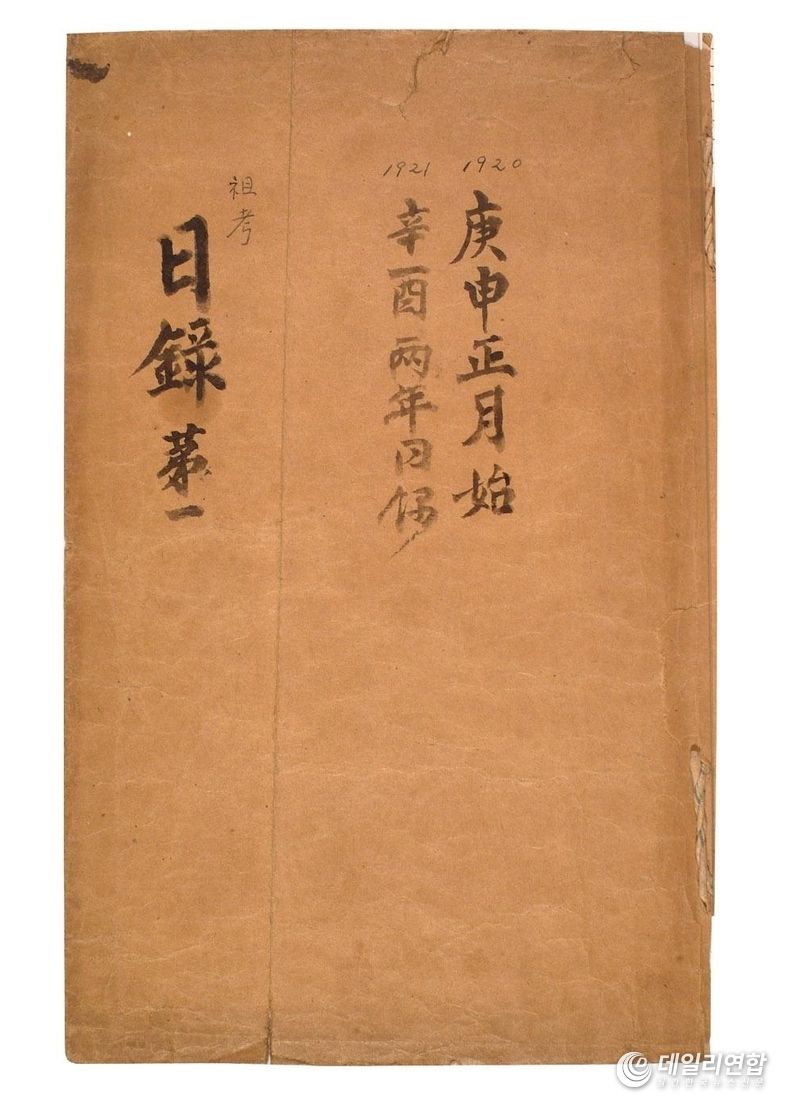 1920
庚申正月始
1921
辛酉兩年日
祖考
日錄 苐一
데일리연합